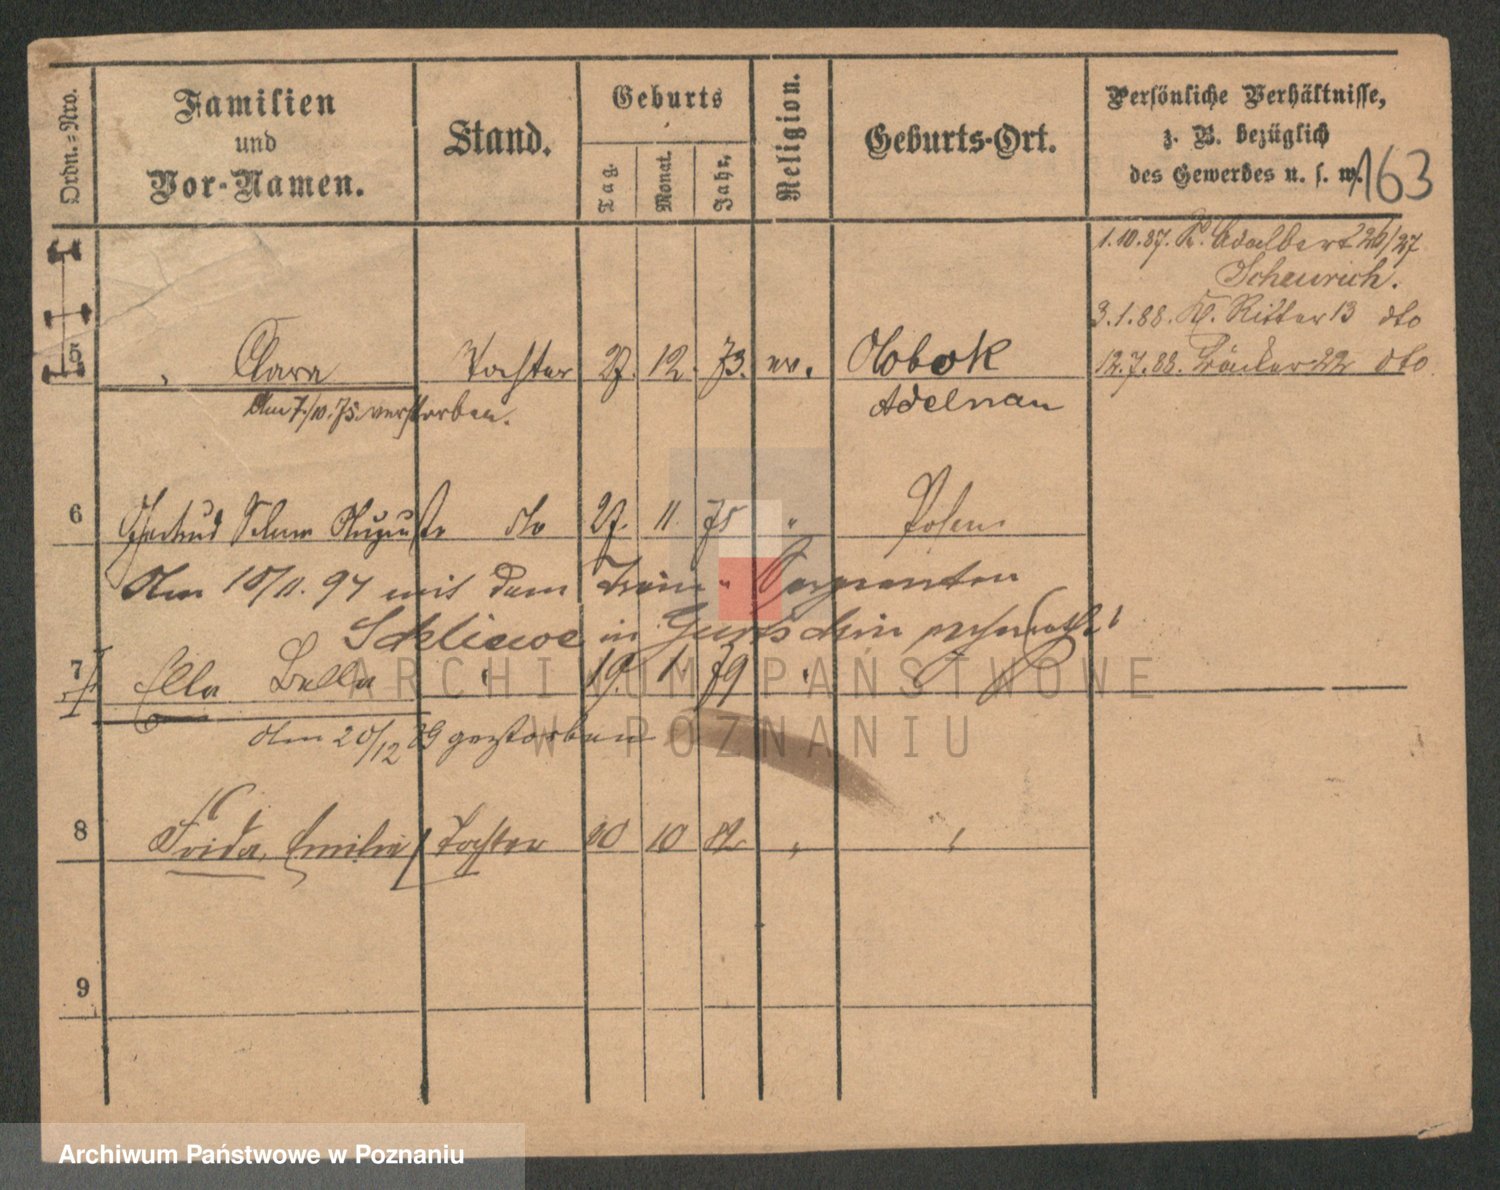 Ordn.-Nro.
Familien
und
Vor-Namen.
Stand.
Geburts
Tag.
Monat.
Jahr.
Religion.
Geburts-Ort.
Persönliche Verhältnisse,
z. B. bezüglich
des Gewerbes u. s. w.
163
1.10.87. Kl. Adalbert 26/27
Scheurich.
3.1.88. Kl. Ritter 13 dto
12.7.88. Bäcker 22 dto.
5 Clara Tochter 27. 12. 73. ev. Olobok
Am 7./10.75. verstorben. Adelnau
6 Gertrud Selma Auguste dto 27. 11. 75 " Posen
Am 10/11. 97 mit dem Train-Sergeanten
Schliewe in verheirathet
7 Ella Bella " 19. 1. 79 "
Am 20/12 89 gestorben
8 Frida, Emilie Tochter 20 10 82 " "
9
ARCHIWUM PAŃSTWOWE
W POZNANIU
Archiwum Państwowe w Poznaniu